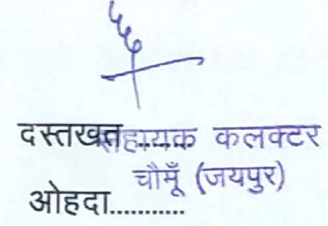 दस्तखत......
सहायक कलक्टर
चौमूँ (जयपुर)
ओहदा...........